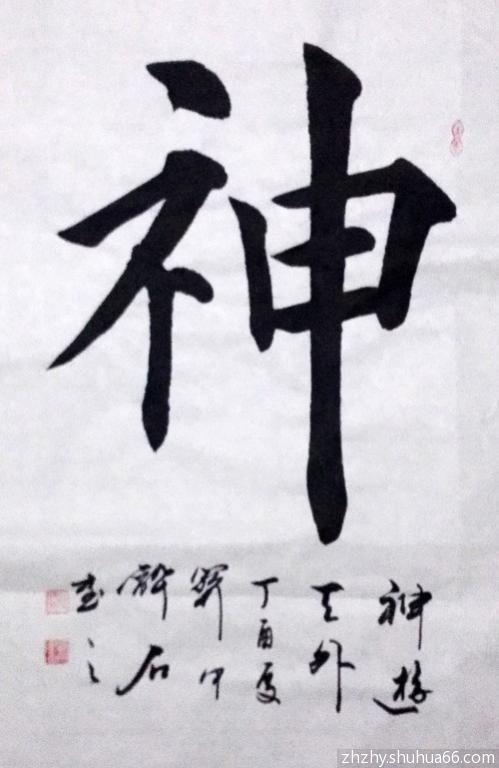 神
神遊
天外
丁酉夏
石
書之
zhzhyshuhua66.com